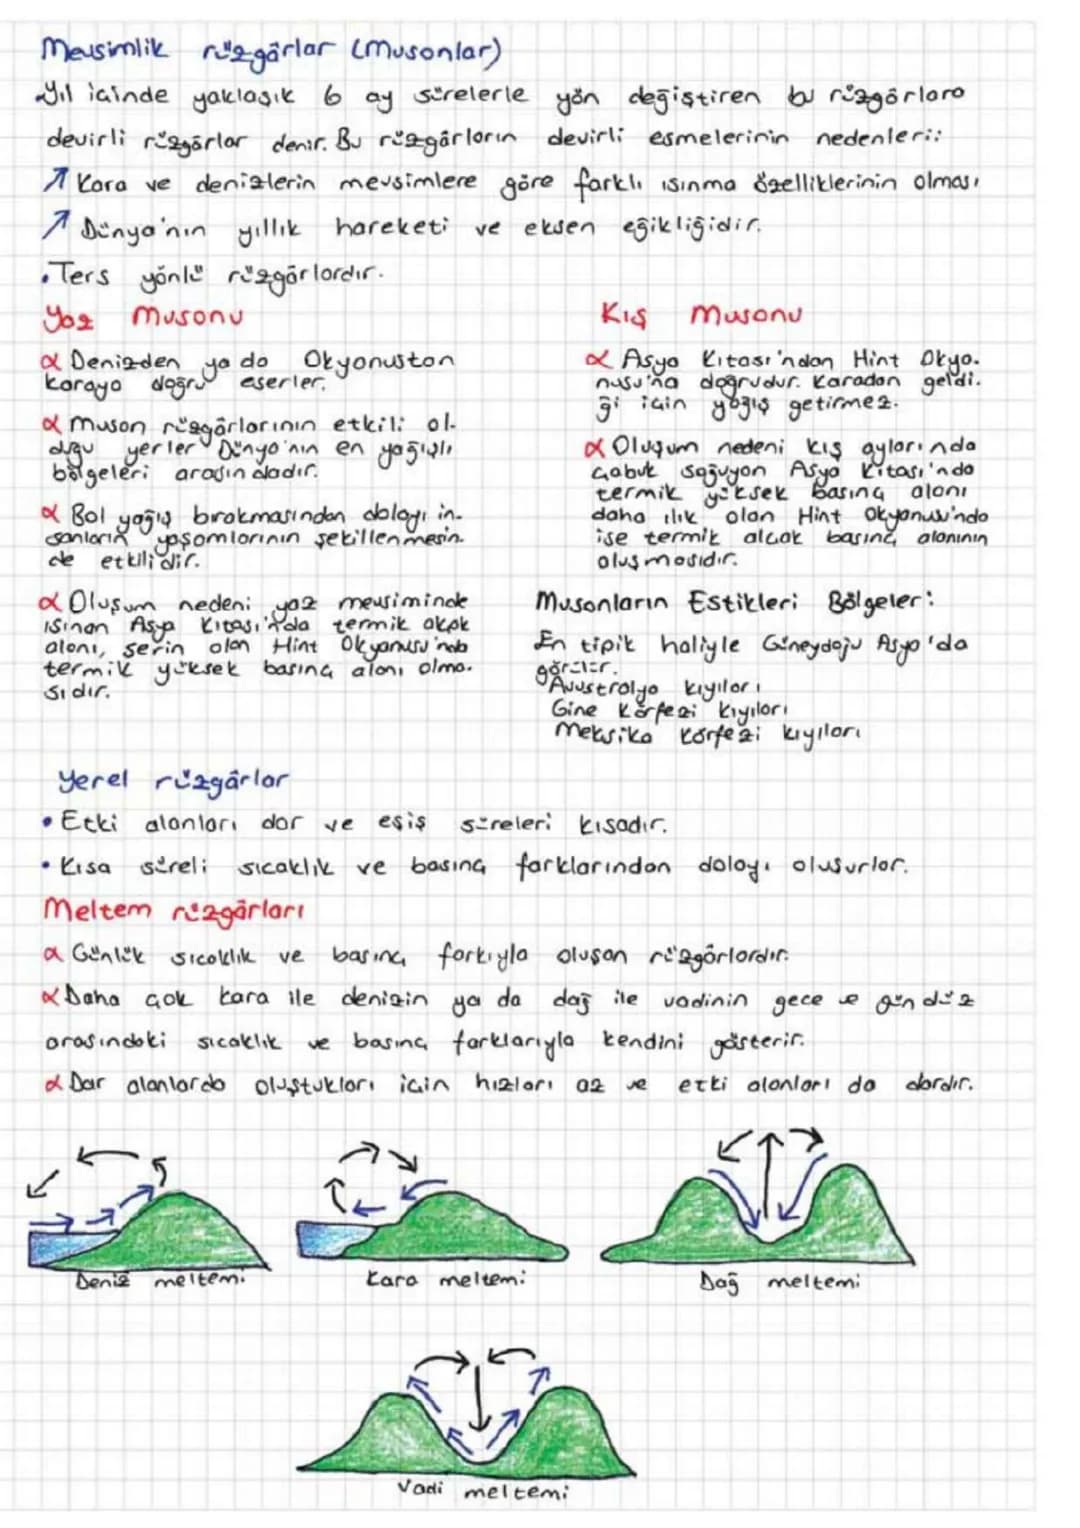 Mevsimlik rüzgârlar (Musonlar)
Yıl içinde yaklaşık 6 ay sürelerle yön değiştiren bu rüzgârlara
devirli rüzgârlar denir. Bu rüzgârların devirli esmelerinin nedenleri:
↗ Kara ve denizlerin mevsimlere göre farklı ısınma özelliklerinin olması
↗ Dünya'nın yıllık hareketi ve eksen eğikliğidir.
• Ters yönlü rüzgârlardır.
Yaz Musonu
α Denizden ya da Okyanustan
karaya doğru eserler.
α Muson rüzgârlarının etkili ol-
duğu yerler Dünya'nın en yağışlı
bölgeleri arasındadır.
α Bol yağış bırakmasından dolayı in-
sanların yaşamlarının şekillenmesin-
de etkilidir.
α Oluşum nedeni yaz mevsiminde
ısınan Asya Kıtası'nda termik alçak
alanı, serin olan Hint Okyanusu'nda
termik yüksek basınç alanı olma-
sıdır.
Kış Musonu
α Asya Kıtası'ndan Hint Okya-
nusu'na doğrudur. Karadan geldi-
ği için yağış getirmez.
α Oluşum nedeni kış aylarında
çabuk soğuyan Asya Kıtası'nda
termik yüksek basınç alanı
daha ılık olan Hint Okyanusu'nda
ise termik alçak basınç alanının
oluşmasıdır.
Musonların Estikleri Bölgeler:
En tipik haliyle Güneydoğu Asya'da
görülür.
Avustralya kıyıları
Gine Körfezi kıyıları
Meksika Körfezi kıyıları
Yerel rüzgârlar
• Etki alanları dar ve esiş süreleri kısadır.
• Kısa süreli sıcaklık ve basınç farklarından dolayı oluşurlar.
Meltem rüzgârları
α Günlük sıcaklık ve basınç farkıyla oluşan rüzgârlardır.
α Daha çok kara ile denizin ya da dağ ile vadinin gece ve gündüz
arasındaki sıcaklık ve basınç farklarıyla kendini gösterir.
α Dar alanlarda oluştukları için hızları az ve etki alanları da dardır.
Deniz meltemi
Kara meltemi
Dağ meltemi
Vadi meltemi